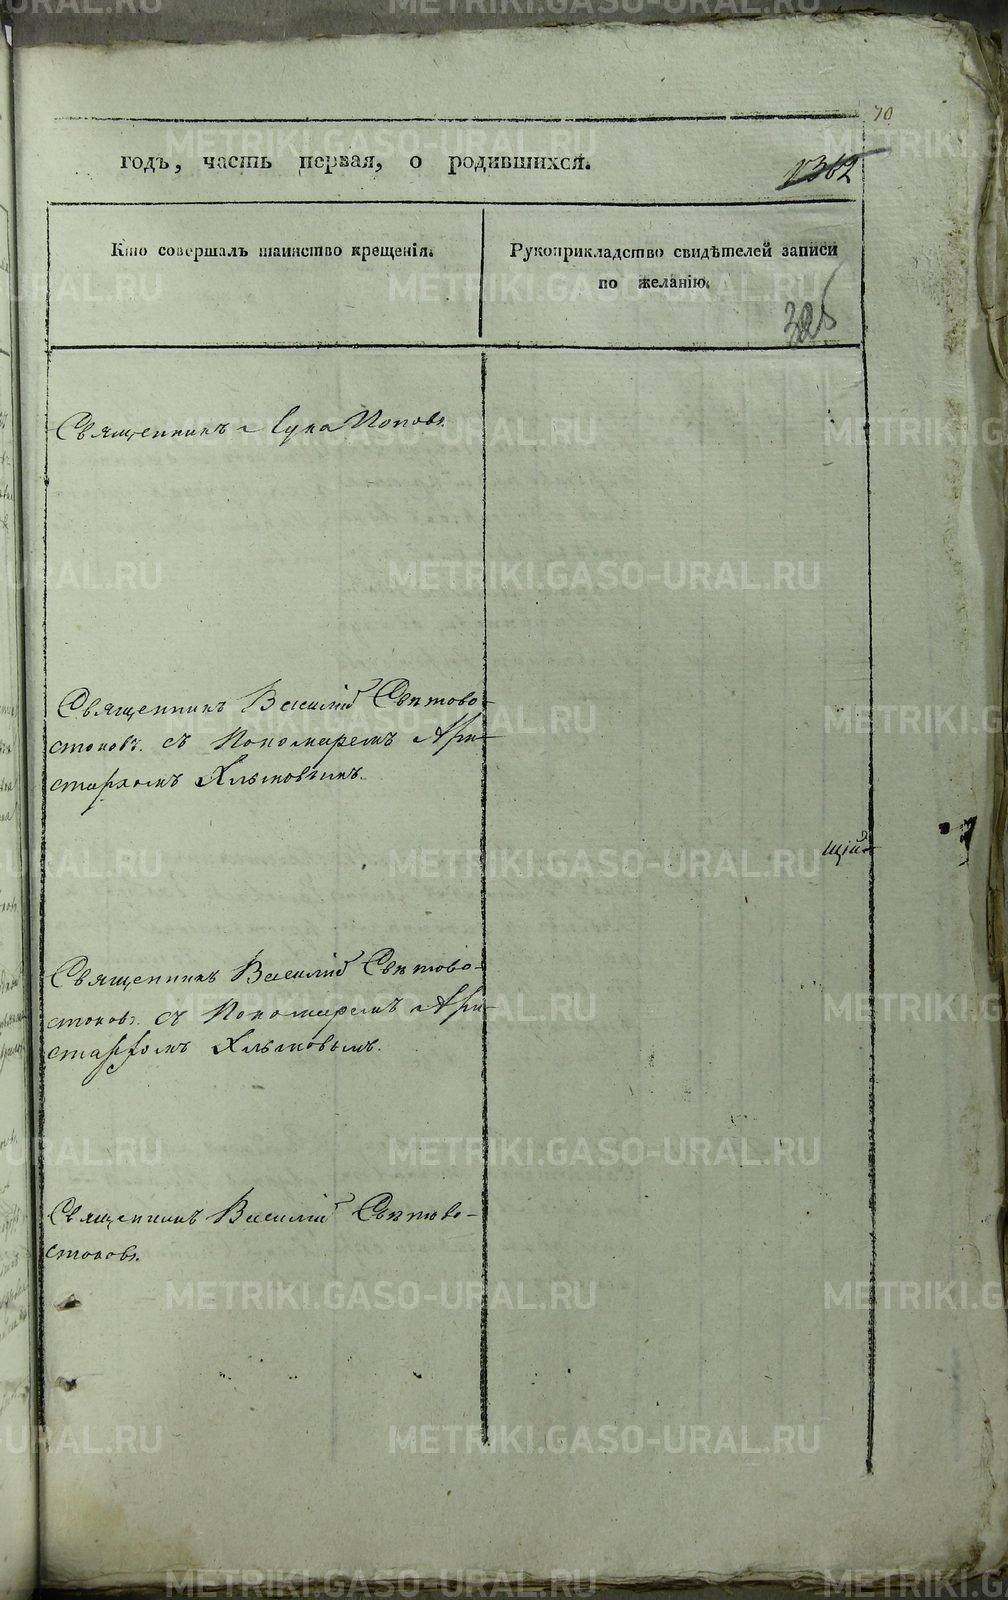 70
годъ, часть первая, о родившихся.
1362
Кто совершалъ таинство крещенія.
Рукоприкладство свидѣтелей записи
по желанію.
325
Священникъ Лука Поповъ.
Священникъ Василій Свѣтово-
стоковъ. съ Пономаремъ Ари-
стархомъ Хлыновымъ.
щій
Священникъ Василій Свѣтово-
стоковъ. съ Пономаремъ Ари-
стархомъ Хлыновымъ.
Священникъ Василій Свѣтово-
стоковъ.
METRIKI.GASO-URAL.RU